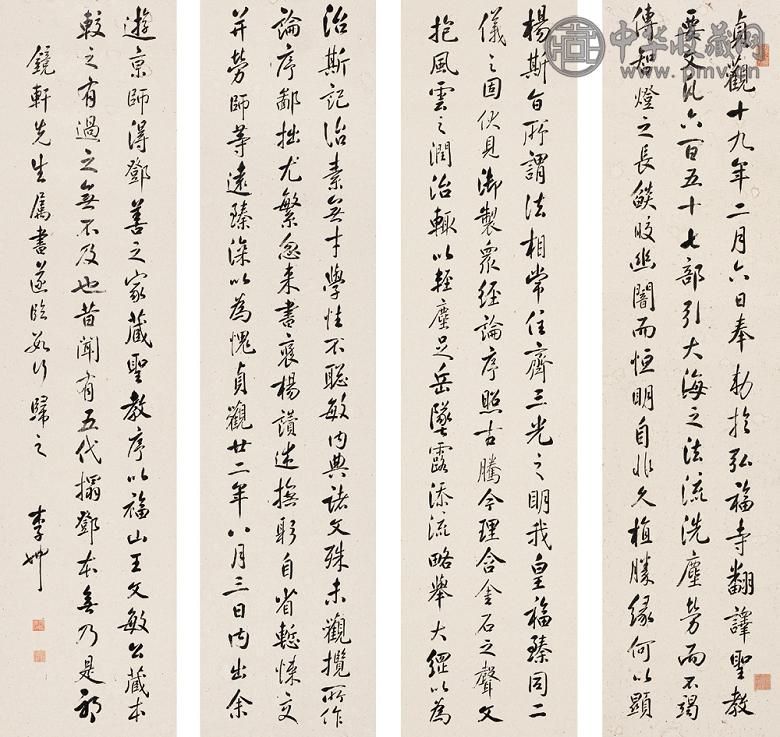 貞觀十九年二月六日奉勅於弘福寺翻譯聖教
要文凡六百五十七部引大海之法流洗塵勞而不竭
傳智燈之長焰皎幽闇而恒明自非久植勝緣何以顯
楊斯旨所謂法相常住齊三光之明我皇福臻同二
儀之固伏見御製眾經論序照古騰今理含金石之聲文
抱風雲之潤治輒以輕塵足岳墜露添流略舉大綱以為
治斯記治素無才學性不聰敏內典諸文殊未觀攬所作
論序鄙拙尤繁忽來書褒楊讚述撫躬自省慙悚交
并勞師等遠臻深以為愧貞觀廿二年八月三日內出余
遊京師得鄧善之家藏聖教序以福山王文敏公藏本
較之有過之無不及也昔聞有五代搨鄧本無乃是邪
鏡軒先生屬書遂臨數行歸之 李
中华收藏网